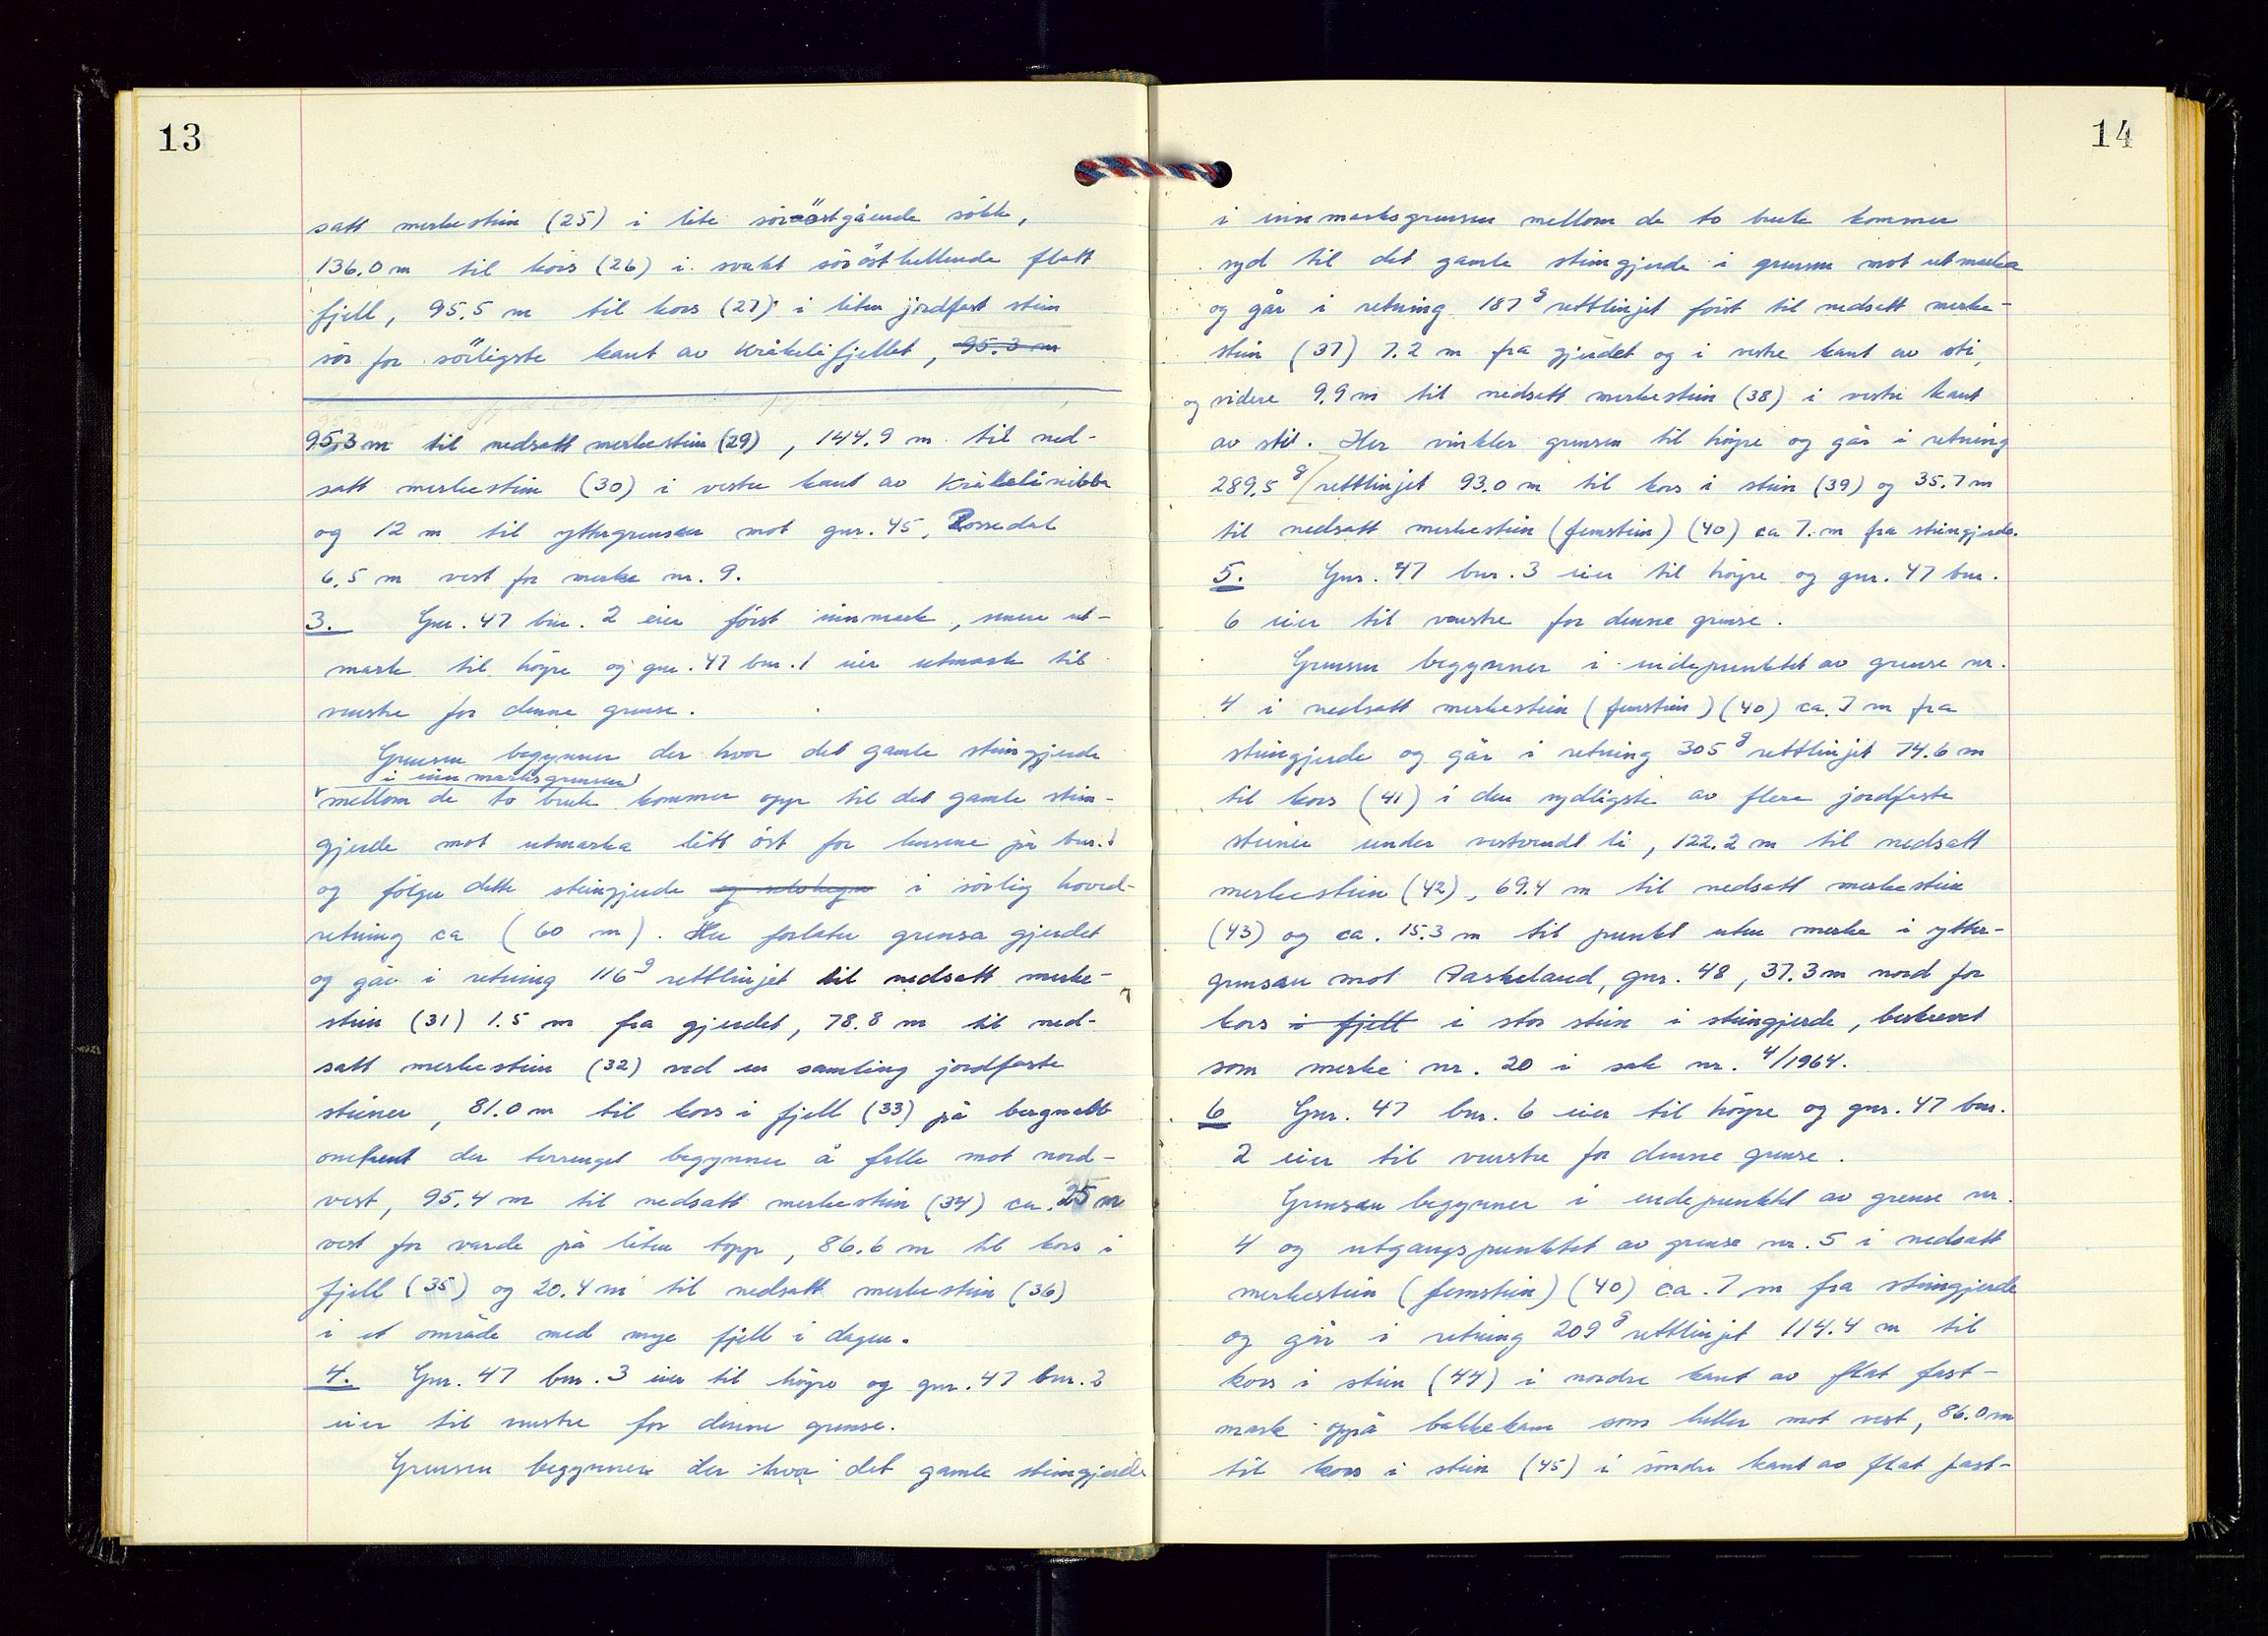 13
satt merkestein (25) i lite sörøstgående sökk,
136.0 m til kors (26) i svakt sörösthellende flatt
fjell, 95.5 m til kors (27) i liten jordfast stein
sör for sörligste kant av Kråkelifjellet, 95.3 m
95,3 m til nedsatt merkestein (29), 144.9 m til ned-
satt merkestein (30) i vestre kant av Kråkelinibba
og 12 m til yttergrensen mot gnr. 45, Rossedal
6,5 m vest for merke nr. 9.
3. Gnr. 47 bnr. 2 eier först innmark, senere ut-
mark til höyre og gnr. 47 bnr. 1 eier utmark til
venstre for denne grense.
Grensen begynner der hvor det gamle steingjerde
i innmarksgrensen
mellom de to bruk kommer opp til det gamle stein-
gjerde mot utmarka litt öst for husene på bnr. 1
og fölger dette steingjerde og utvikger i sörlig hoved-
retning ca (60 m). Her forlater grensa gjerdet
og går i retning 116g rettlinjet til nedsatt merke-
stein (31) 1.5 m fra gjerdet, 78.8 m til ned-
satt merkestein (32) ved en samling jordfaste
steiner, 81.0 m til kors i fjell (33) på bergnabb
omtrent der terrenget begynner å falle mot nord-
vest, 95.4 m til nedsatt merkestein (34) ca. 25 m
vest for varde på liten topp, 86.6 m til kors i
fjell (35) og 20.4 m til nedsatt merkestein (36)
i et område med mye fjell i dagen.
4. Gnr. 47 bnr. 3 eier til höyre og gnr. 47 bnr. 2
eier til venstre for denne grense.
Grensen begynner der hvor det gamle steingjerde
14
i innmarksgrensen mellom de to bruk kommer
syd til det gamle steingjerde i grensen mot utmarka
og går i retning 187g rettlinjet först til nedsatt merke-
stein (37) 7.2 m fra gjerdet og i vestre kant av sti,
og videre 9.9 m til nedsatt merkestein (38) i vestre kant
av sti. Her vinkler grensen til höyre og går i retning
289,5g rettlinjet 93.0 m til kors i stein (39) og 35.7 m
til nedsatt merkestein (femstein) (40) ca 7. m fra steingjerde.
5. Gnr. 47 bnr. 3 eier til höyre og gnr. 47 bnr.
6 eier til venstre for denne grense.
Grensen begynner i endepunktet av grense nr.
4 i nedsatt merkestein (femstein) (40) ca. 7 m fra
steingjerde og går i retning 305g rettlinjet 74.6 m
til kors (41) i den sydligste av flere jordfaste
steiner under vestvendt li, 122.2 m til nedsatt
merkestein (42), 69.4 m til nedsatt merkestein
(43) og ca. 15.3 m til punkt uten merke i ytter-
grensen mot Aaskeland, gnr. 48, 37.3 m nord for
kors i fjell i stor stein i steingjerde, beskrevet
som merke nr. 20 i sak nr. 4/1964.
6 Gnr. 47 bnr. 6 eier til höyre og gnr. 47 bnr.
2 eier til venstre for denne grense.
Grensen begynner i endepunktet av grense nr.
4 og utgangspunktet av grense nr. 5 i nedsatt
merkestein (femstein) (40) ca. 7 m fra steingjerde
og går i retning 209g rettlinjet 114.4 m til
kors i stein (44) i nordre kant av flat fast-
mark oppå bakkekam som heller mot vest, 86.0 m
til kors i stein (45) i söndre kant av flat fast-